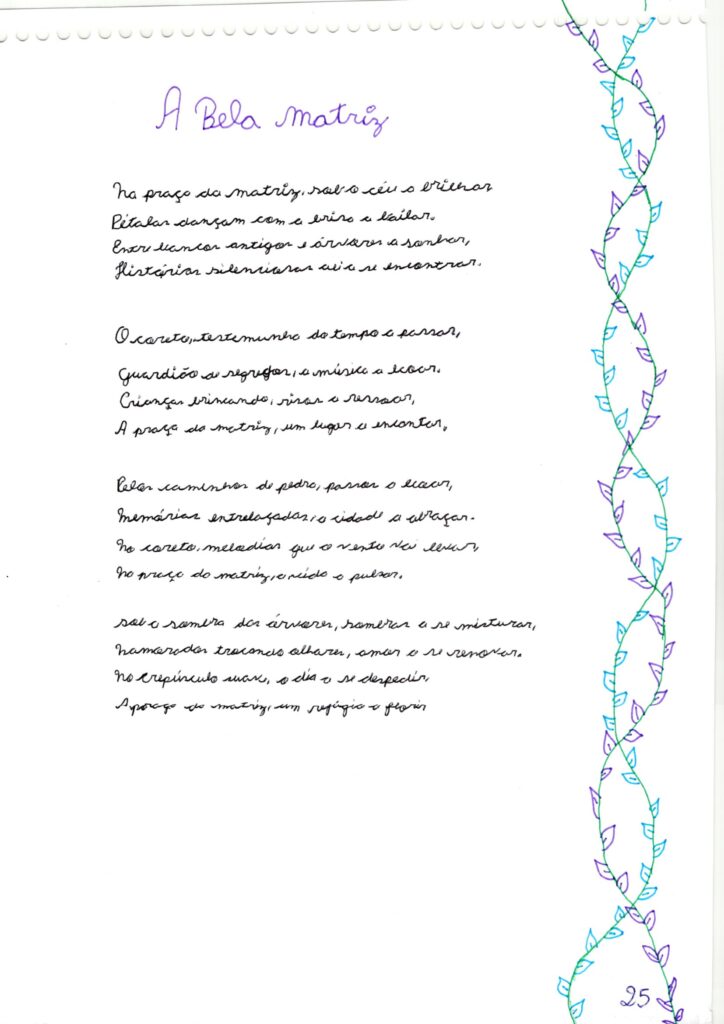 A Bela Matriz
Na praça da matriz, sob o céu a brilhar
Pétalas dançam com a brisa a bailar.
Entre bancos antigos e árvores a sonhar,
Histórias silenciosas ali a se encontrar.
O coreto, testemunha do tempo a passar,
Guardião de segredos, a música a ecoar.
Crianças brincando, risos a ressoar,
A praça da matriz, um lugar a encantar,
Pelos caminhos de pedra, passos a ecoar,
Memórias entrelaçadas, a cidade a abraçar.
No coreto, melodias que o vento vai levar,
Na praça da matriz, a vida a pulsar.
sob a sombra das árvores, sombras a se misturar,
Namorados trocando olhares, amor a se renovar.
No crepúsculo suave, o dia a se despedir,
A praça da matriz, um refúgio a florir
25